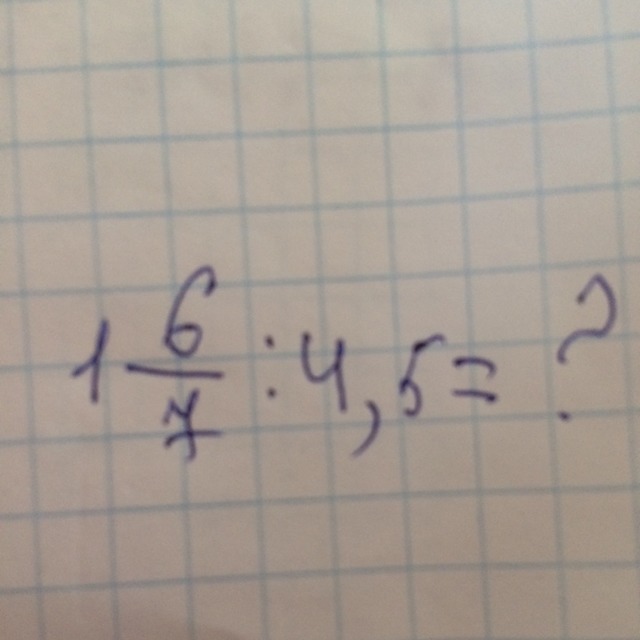 1 6/7 : 4,5 = ?